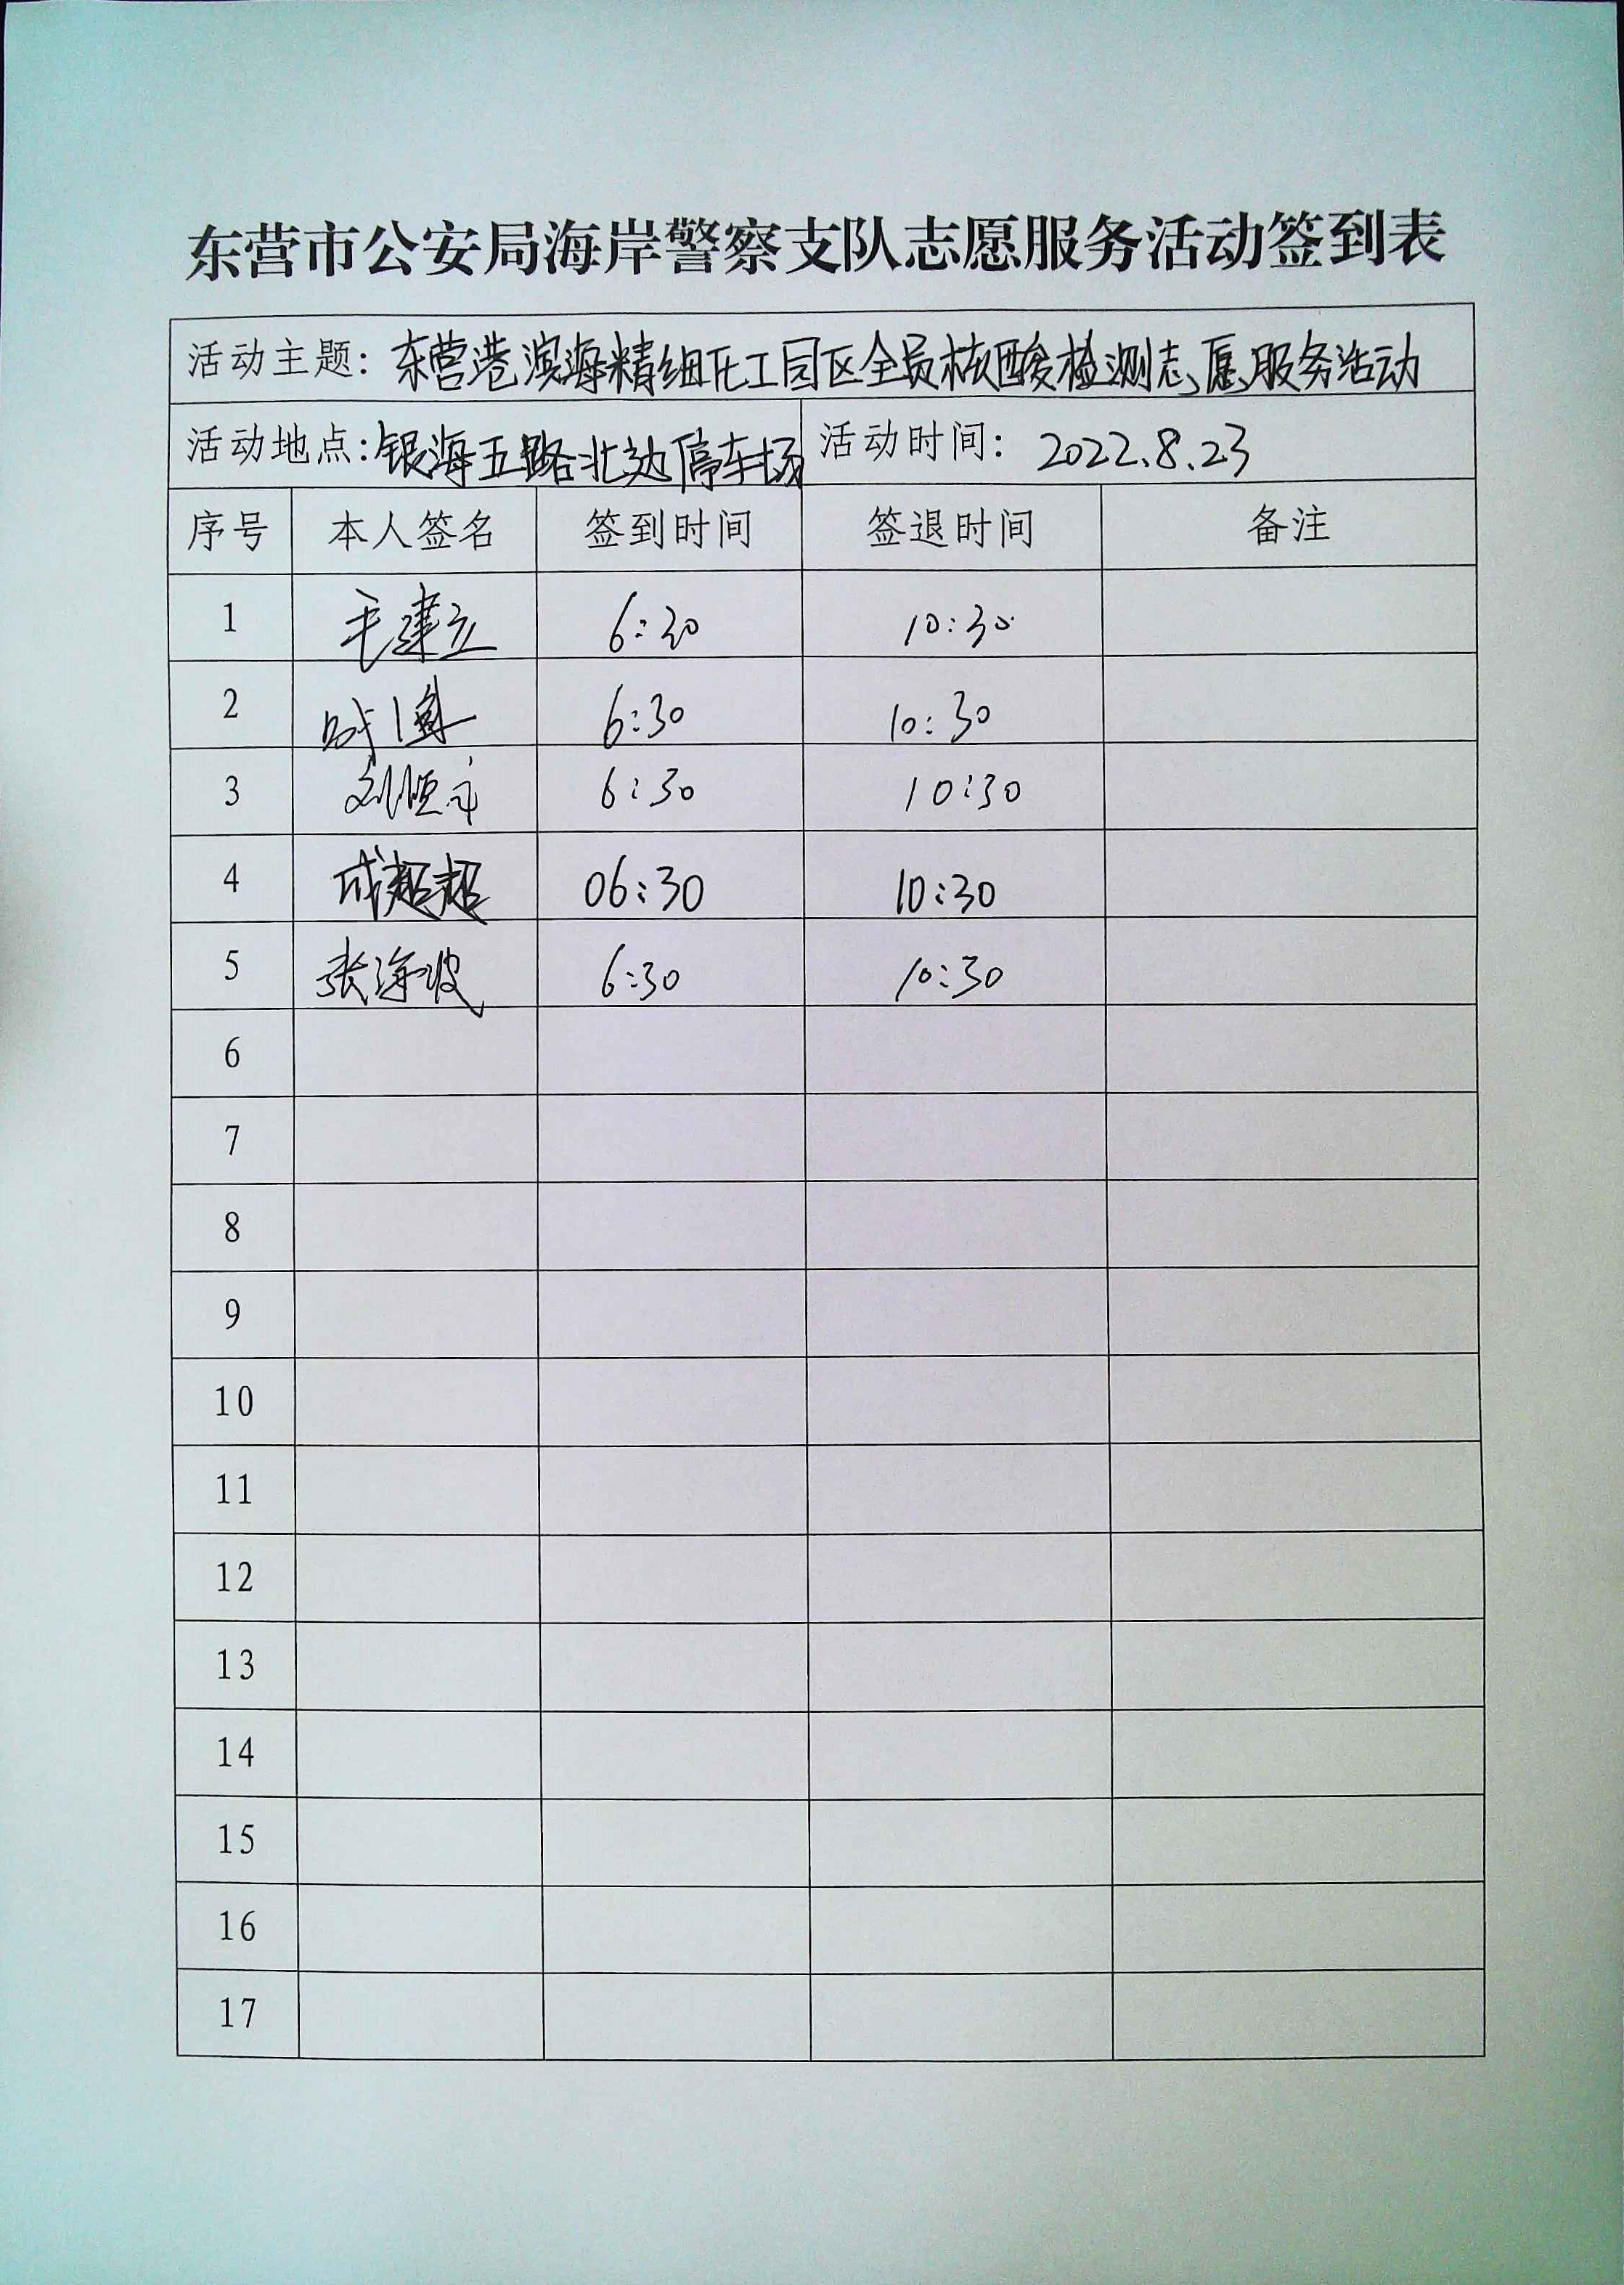 东营市公安局海岸警察支队志愿服务活动签到表
活动主题: 东营港滨海精细化工园区全员核酸检测志愿服务活动
活动地点: 银海五路北边停车场 活动时间: 2022.8.23
序号 本人签名 签到时间 签退时间 备注
1 毛建立 6:30 10:30
2 6:30 10:30
3 6:30 10:30
4 成超超 06:30 10:30
5 张海波 6:30 10:30
6
7
8
9
10
11
12
13
14
15
16
17